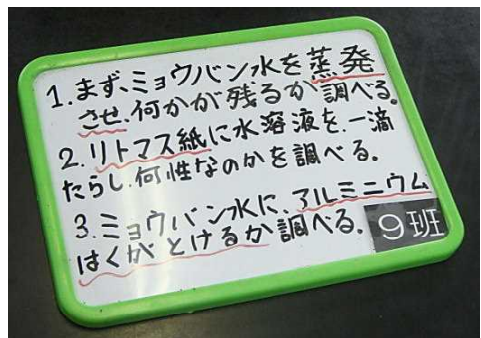 1.まず、ミョウバン水を蒸発
させ、何かが残るか調べる。
2.リトマス紙に水溶液を、一滴
たらし、何性なのかを調べる。
3.ミョウバン水に、アルミニウム
はくがとけるか調べる。
9班